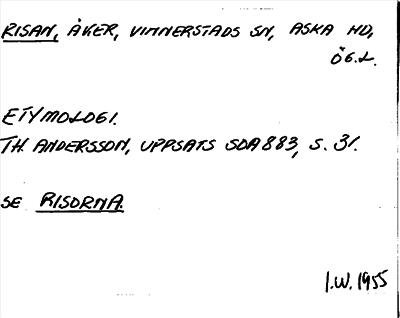 RISAN, ÅKER, VINNERSTADS SN, ASKA HD,
ÖG.L.
ETYMOLOGI.
TH. ANDERSSON, UPPSATS SOA 883, S. 31.
SE RISORNA.
I.W. 1955